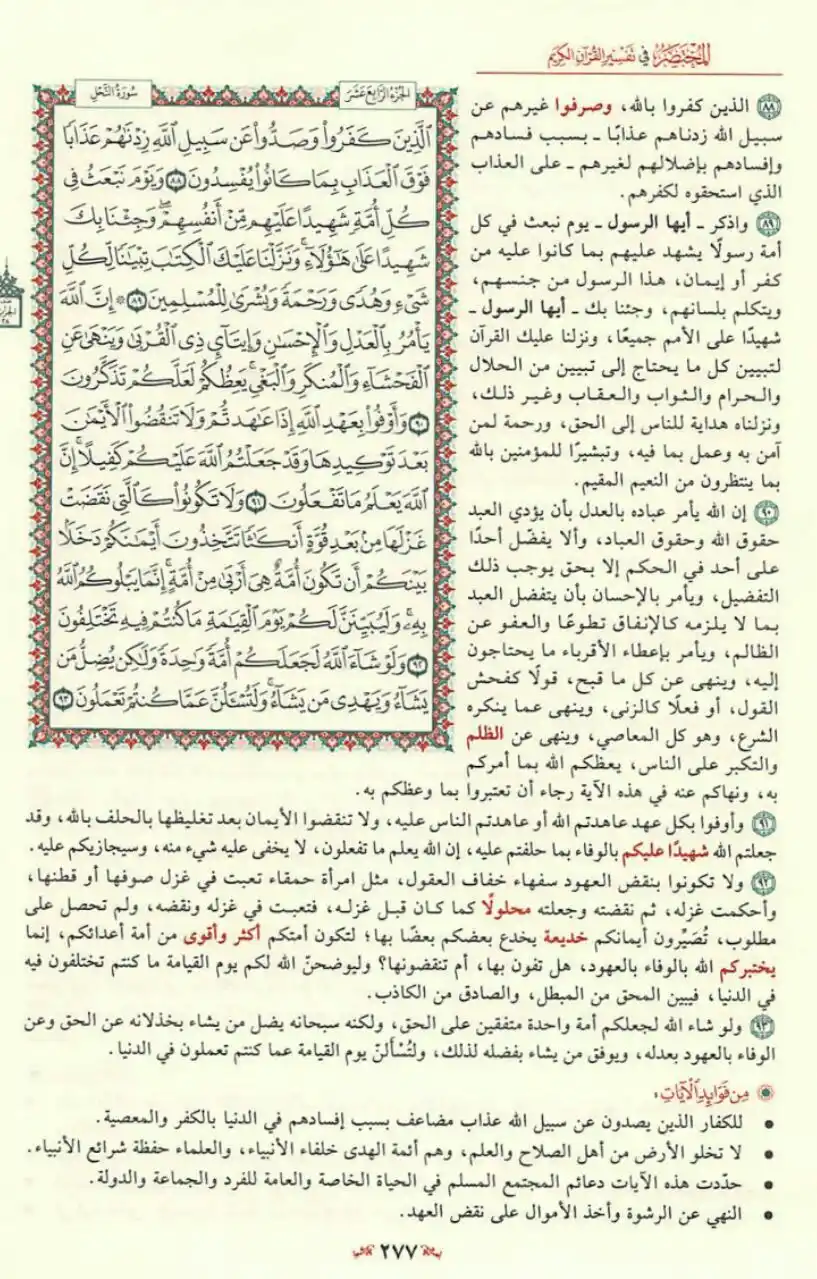 المختصر في تفسير القرآن الكريم
الجزء الرابع عشر
سورة النحل
ٱلَّذِينَ كَفَرُوا۟ وَصَدُّوا۟ عَن سَبِيلِ ٱللَّهِ زِدْنَٰهُمْ عَذَابًا
فَوْقَ ٱلْعَذَابِ بِمَا كَانُوا۟ يُفْسِدُونَ ٨٨ وَيَوْمَ نَبْعَثُ فِى
كُلِّ أُمَّةٍ شَهِيدًا عَلَيْهِم مِّنْ أَنفُسِهِمْ ۖ وَجِئْنَا بِكَ
شَهِيدًا عَلَىٰ هَٰٓؤُلَآءِ ۚ وَنَزَّلْنَا عَلَيْكَ ٱلْكِتَٰبَ تِبْيَٰنًا لِّكُلِّ
شَىْءٍ وَهُدًى وَرَحْمَةً وَبُشْرَىٰ لِلْمُسْلِمِينَ ٨٩ ۞ إِنَّ ٱللَّهَ
يَأْمُرُ بِٱلْعَدْلِ وَٱلْإِحْسَٰنِ وَإِيتَآئِ ذِى ٱلْقُرْبَىٰ وَيَنْهَىٰ عَنِ
ٱلْفَحْشَآءِ وَٱلْمُنكَرِ وَٱلْبَغْىِ ۚ يَعِظُكُمْ لَعَلَّكُمْ تَذَكَّرُونَ
٩٠ وَأَوْفُوا۟ بِعَهْدِ ٱللَّهِ إِذَا عَٰهَدتُّمْ وَلَا تَنقُضُوا۟ ٱلْأَيْمَٰنَ
بَعْدَ تَوْكِيدِهَا وَقَدْ جَعَلْتُمُ ٱللَّهَ عَلَيْكُمْ كَفِيلًا ۚ إِنَّ
ٱللَّهَ يَعْلَمُ مَا تَفْعَلُونَ ٩١ وَلَا تَكُونُوا۟ كَٱلَّتِى نَقَضَتْ
غَزْلَهَا مِنۢ بَعْدِ قُوَّةٍ أَنكَٰثًا تَتَّخِذُونَ أَيْمَٰنَكُمْ دَخَلًۢا
بَيْنَكُمْ أَن تَكُونَ أُمَّةٌ هِىَ أَرْبَىٰ مِنْ أُمَّةٍ ۚ إِنَّمَا يَبْلُوكُمُ ٱللَّهُ
بِهِۦ ۚ وَلَيُبَيِّنَنَّ لَكُمْ يَوْمَ ٱلْقِيَٰمَةِ مَا كُنتُمْ فِيهِ تَخْتَلِفُونَ
٩٢ وَلَوْ شَآءَ ٱللَّهُ لَجَعَلَكُمْ أُمَّةً وَٰحِدَةً وَلَٰكِن يُضِلُّ مَن
يَشَآءُ وَيَهْدِى مَن يَشَآءُ ۚ وَلَتُسْـَٔلُنَّ عَمَّا كُنتُمْ تَعْمَلُونَ ٩٣
٨٨ الذين كفروا بالله، وصرفوا غيرهم عن
سبيل الله زدناهم عذابًا ـ بسبب فسادهم
وإفسادهم بإضلالهم لغيرهم ـ على العذاب
الذي استحقوه لكفرهم.
٨٩ واذكر ـ أيها الرسول ـ يوم نبعث في كل
أمة رسولًا يشهد عليهم بما كانوا عليه من
كفر أو إيمان، هذا الرسول من جنسهم،
ويتكلم بلسانهم، وجئنا بك ـ أيها الرسول ـ
شهيدًا على الأمم جميعًا، ونزلنا عليك القرآن
لتبيين كل ما يحتاج إلى تبيين من الحلال
والحرام والثواب والعقاب وغير ذلك،
ونزلناه هداية للناس إلى الحق، ورحمة لمن
آمن به وعمل بما فيه، وتبشيرًا للمؤمنين بالله
بما ينتظرون من النعيم المقيم.
٩٠ إن الله يأمر عباده بالعدل بأن يؤدي العبد
حقوق الله وحقوق العباد، وألا يفضّل أحدًا
على أحد في الحكم إلا بحق يوجب ذلك
التفضيل، ويأمر بالإحسان بأن يتفضل العبد
بما لا يلزمه كالإنفاق تطوعًا والعفو عن
الظالم، ويأمر بإعطاء الأقرباء ما يحتاجون
إليه، وينهى عن كل ما قبح، قولًا كفحش
القول، أو فعلًا كالزنى، وينهى عما ينكره
الشرع، وهو كل المعاصي، وينهى عن الظلم
والتكبر على الناس، يعظكم الله بما أمركم
به، ونهاكم عنه في هذه الآية رجاء أن تعتبروا بما وعظكم به.
٩١ وأوفوا بكل عهد عاهدتم الله أو عاهدتم الناس عليه، ولا تنقضوا الأيمان بعد تغليظها بالحلف بالله، وقد
جعلتم الله شهيدًا عليكم بالوفاء بما حلفتم عليه، إن الله يعلم ما تفعلون، لا يخفى عليه شيء منه، وسيجازيكم عليه.
٩٢ ولا تكونوا بنقض العهود سفهاء خفاف العقول، مثل امرأة حمقاء تعبت في غزل صوفها أو قطنها،
وأحكمت غزله، ثم نقضته وجعلته محلولًا كما كان قبل غزله، فتعبت في غزله ونقضه، ولم تحصل على
مطلوب، تُصَيِّرون أيمانكم خديعة يخدع بعضكم بعضًا بها؛ لتكون أمتكم أكثر وأقوى من أمة أعدائكم، إنما
يختبركم الله بالوفاء بالعهود، هل تفون بها، أم تنقضونها؟ وليوضحنّ الله لكم يوم القيامة ما كنتم تختلفون فيه
في الدنيا، فيبين المحق من المبطل، والصادق من الكاذب.
٩٣ ولو شاء الله لجعلكم أمة واحدة متفقين على الحق، ولكنه سبحانه يضل من يشاء بخذلانه عن الحق وعن
الوفاء بالعهود بعدله، ويوفق من يشاء بفضله لذلك، ولتُسْألنّ يوم القيامة عما كنتم تعملون في الدنيا.
من فوائد الآيات:
• للكفار الذين يصدون عن سبيل الله عذاب مضاعف بسبب إفسادهم في الدنيا بالكفر والمعصية.
• لا تخلو الأرض من أهل الصلاح والعلم، وهم أئمة الهدى خلفاء الأنبياء، والعلماء حفظة شرائع الأنبياء.
• حدّدت هذه الآيات دعائم المجتمع المسلم في الحياة الخاصة والعامة للفرد والجماعة والدولة.
• النهي عن الرشوة وأخذ الأموال على نقض العهد.
٢٧٧